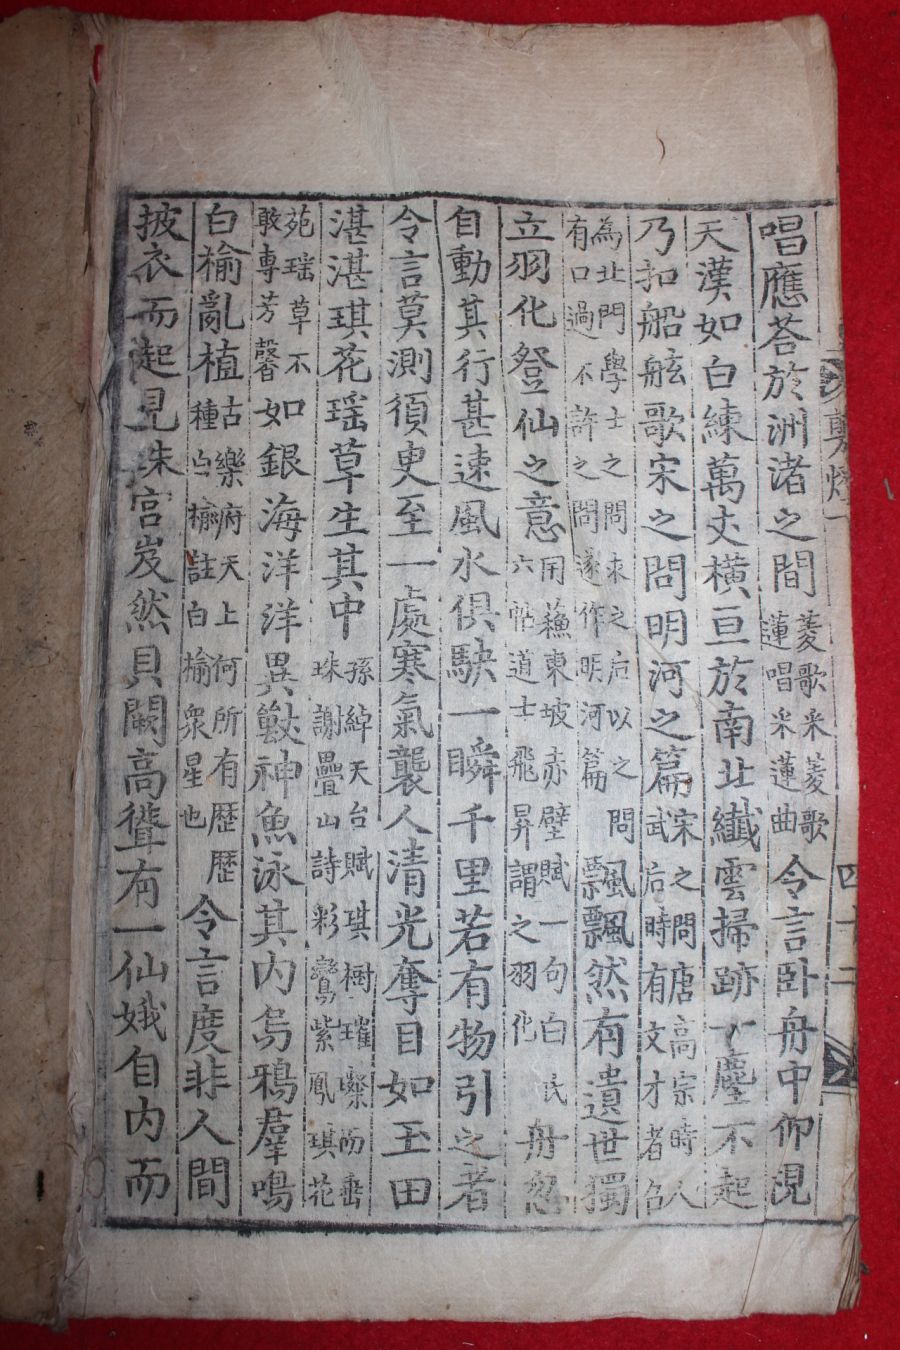 剪燈 四十二
唱應荅於洲渚之間菱歌采菱歌蓮唱采蓮曲令言卧舟中仰視
天漢如白練萬丈橫亘於南北纖雲掃跡一塵不起
乃扣船舷歌宋之問明河之篇宋之問唐高宗時人武后時有文才者名
為北門學士之問求之后以之問有口過不許之問遂作明河篇飄飄然有遺世獨
立羽化登仙之意用蘓東坡赤壁賦一句白氏六帖道士飛昇謂之羽化舟忽
自動其行甚速風水俱駃一瞬千里若有物引之者
令言莫測須臾至一處寒氣襲人清光奪目如玉田
湛湛琪花瑤草生其中孫綽天台賦琪樹璀璨而垂珠謝疊山詩彩鸞紫鳳琪花
苑瑤草不敢專芳馨如銀海洋洋異獸神魚泳其內烏鴉羣鳴
白榆亂植古樂府天上何所有歷歷種白榆註白榆衆星也令言度非人間
披衣而起見珠宮岌然貝闕高聳有一仙娥自內而